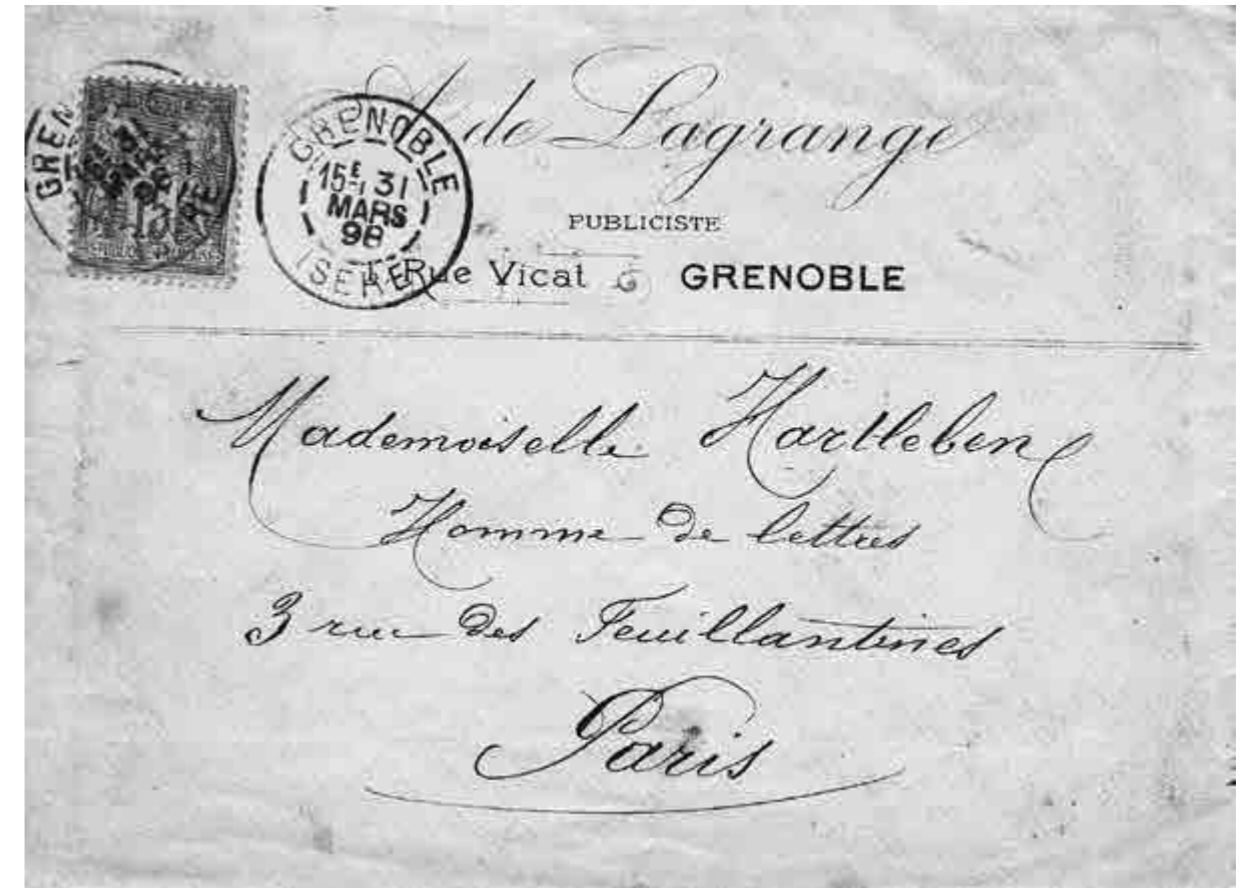 GRENOBLE
15E 31
MARS
98
ISERE
de Lagrange
PUBLICISTE
Rue Vicat GRENOBLE
Mademoiselle Hartleben
Homme de lettres
3 rue des Feuillantines
Paris